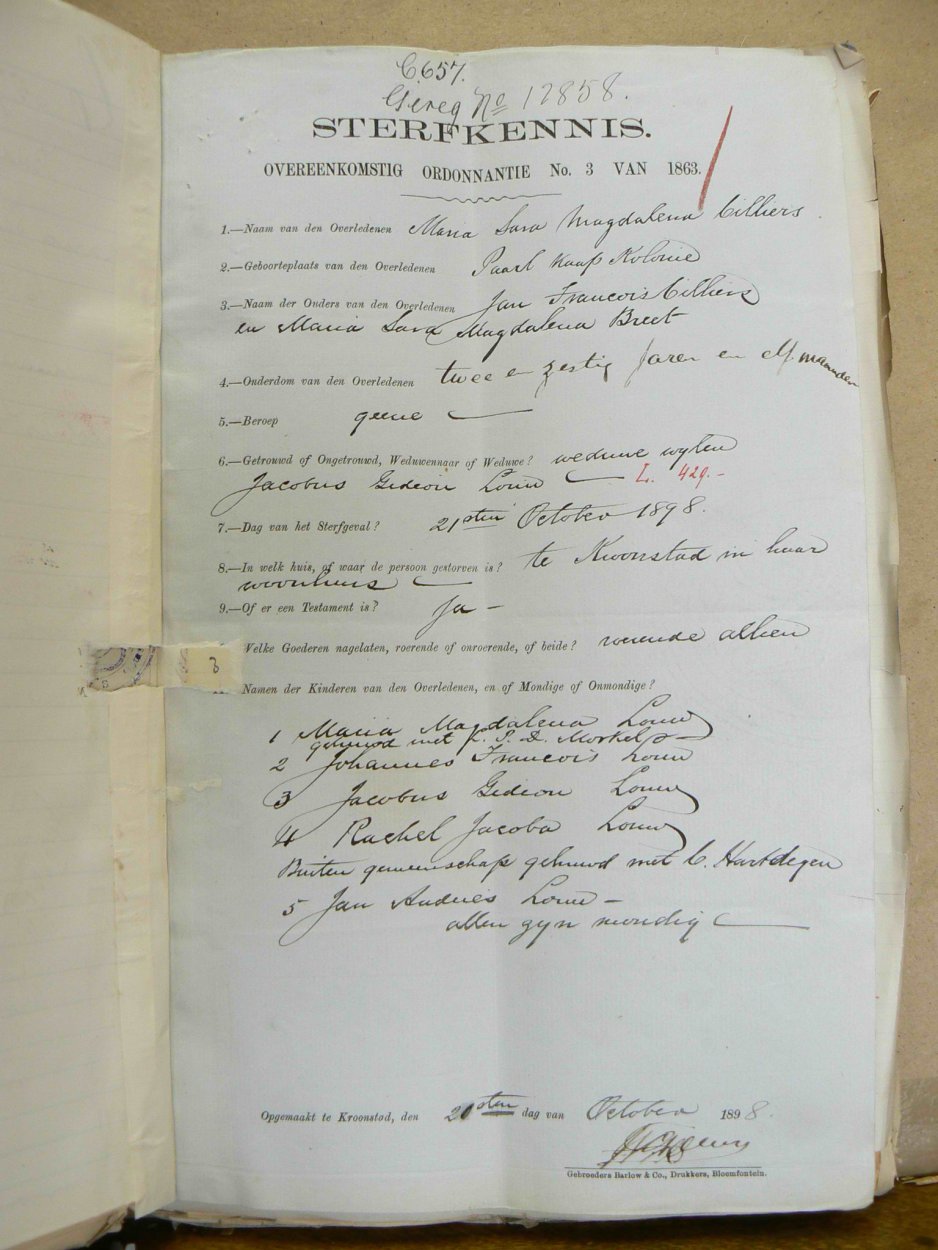 C.657.
Gereg No 12858.
STERFKENNIS.
OVEREENKOMSTIG ORDONNANTIE No. 3 VAN 1863.
1.—Naam van den Overledenen Maria Sara Magdalena Cilliers
2.—Geboorteplaats van den Overledenen Paarl Kaap Kolonie
3.—Naam der Ouders van den Overledenen Jan Francois Cilliers
en Maria Sara Magdalena Breet
4.—Onderdom van den Overledenen twee en zestig Jaren en elf maanden
5.—Beroep geene
6.—Getrouwd of Ongetrouwd, Weduwennaar of Weduwe? weduwe wylen
Jacobus Gideon Louw L. 429.-
7.—Dag van het Sterfgeval? 21sten October 1898.
8.—In welk huis, of waar de persoon gestorven is? te Kroonstad in haar
woonhuis
9.—Of er een Testament is? Ja -
3 Welke Goederen nagelaten, roerende of onroerende, of beide? roerende alleen
Namen der Kinderen van den Overledenen, en of Mondige of Onmondige?
1 Maria Magdalena Louw
gehuwd met P. D. Morkel
2 Johannes Francois Louw
3 Jacobus Gideon Louw
4 Rachel Jacoba Louw
Buiten gemeenschap gehuwd met C. Hartdegen
5 Jan Andries Louw -
allen zyn mondig
Opgemaakt te Kroonstad, den sten dag van October 1898.
Gebroeders Barlow & Co., Drukkers, Bloemfontein.